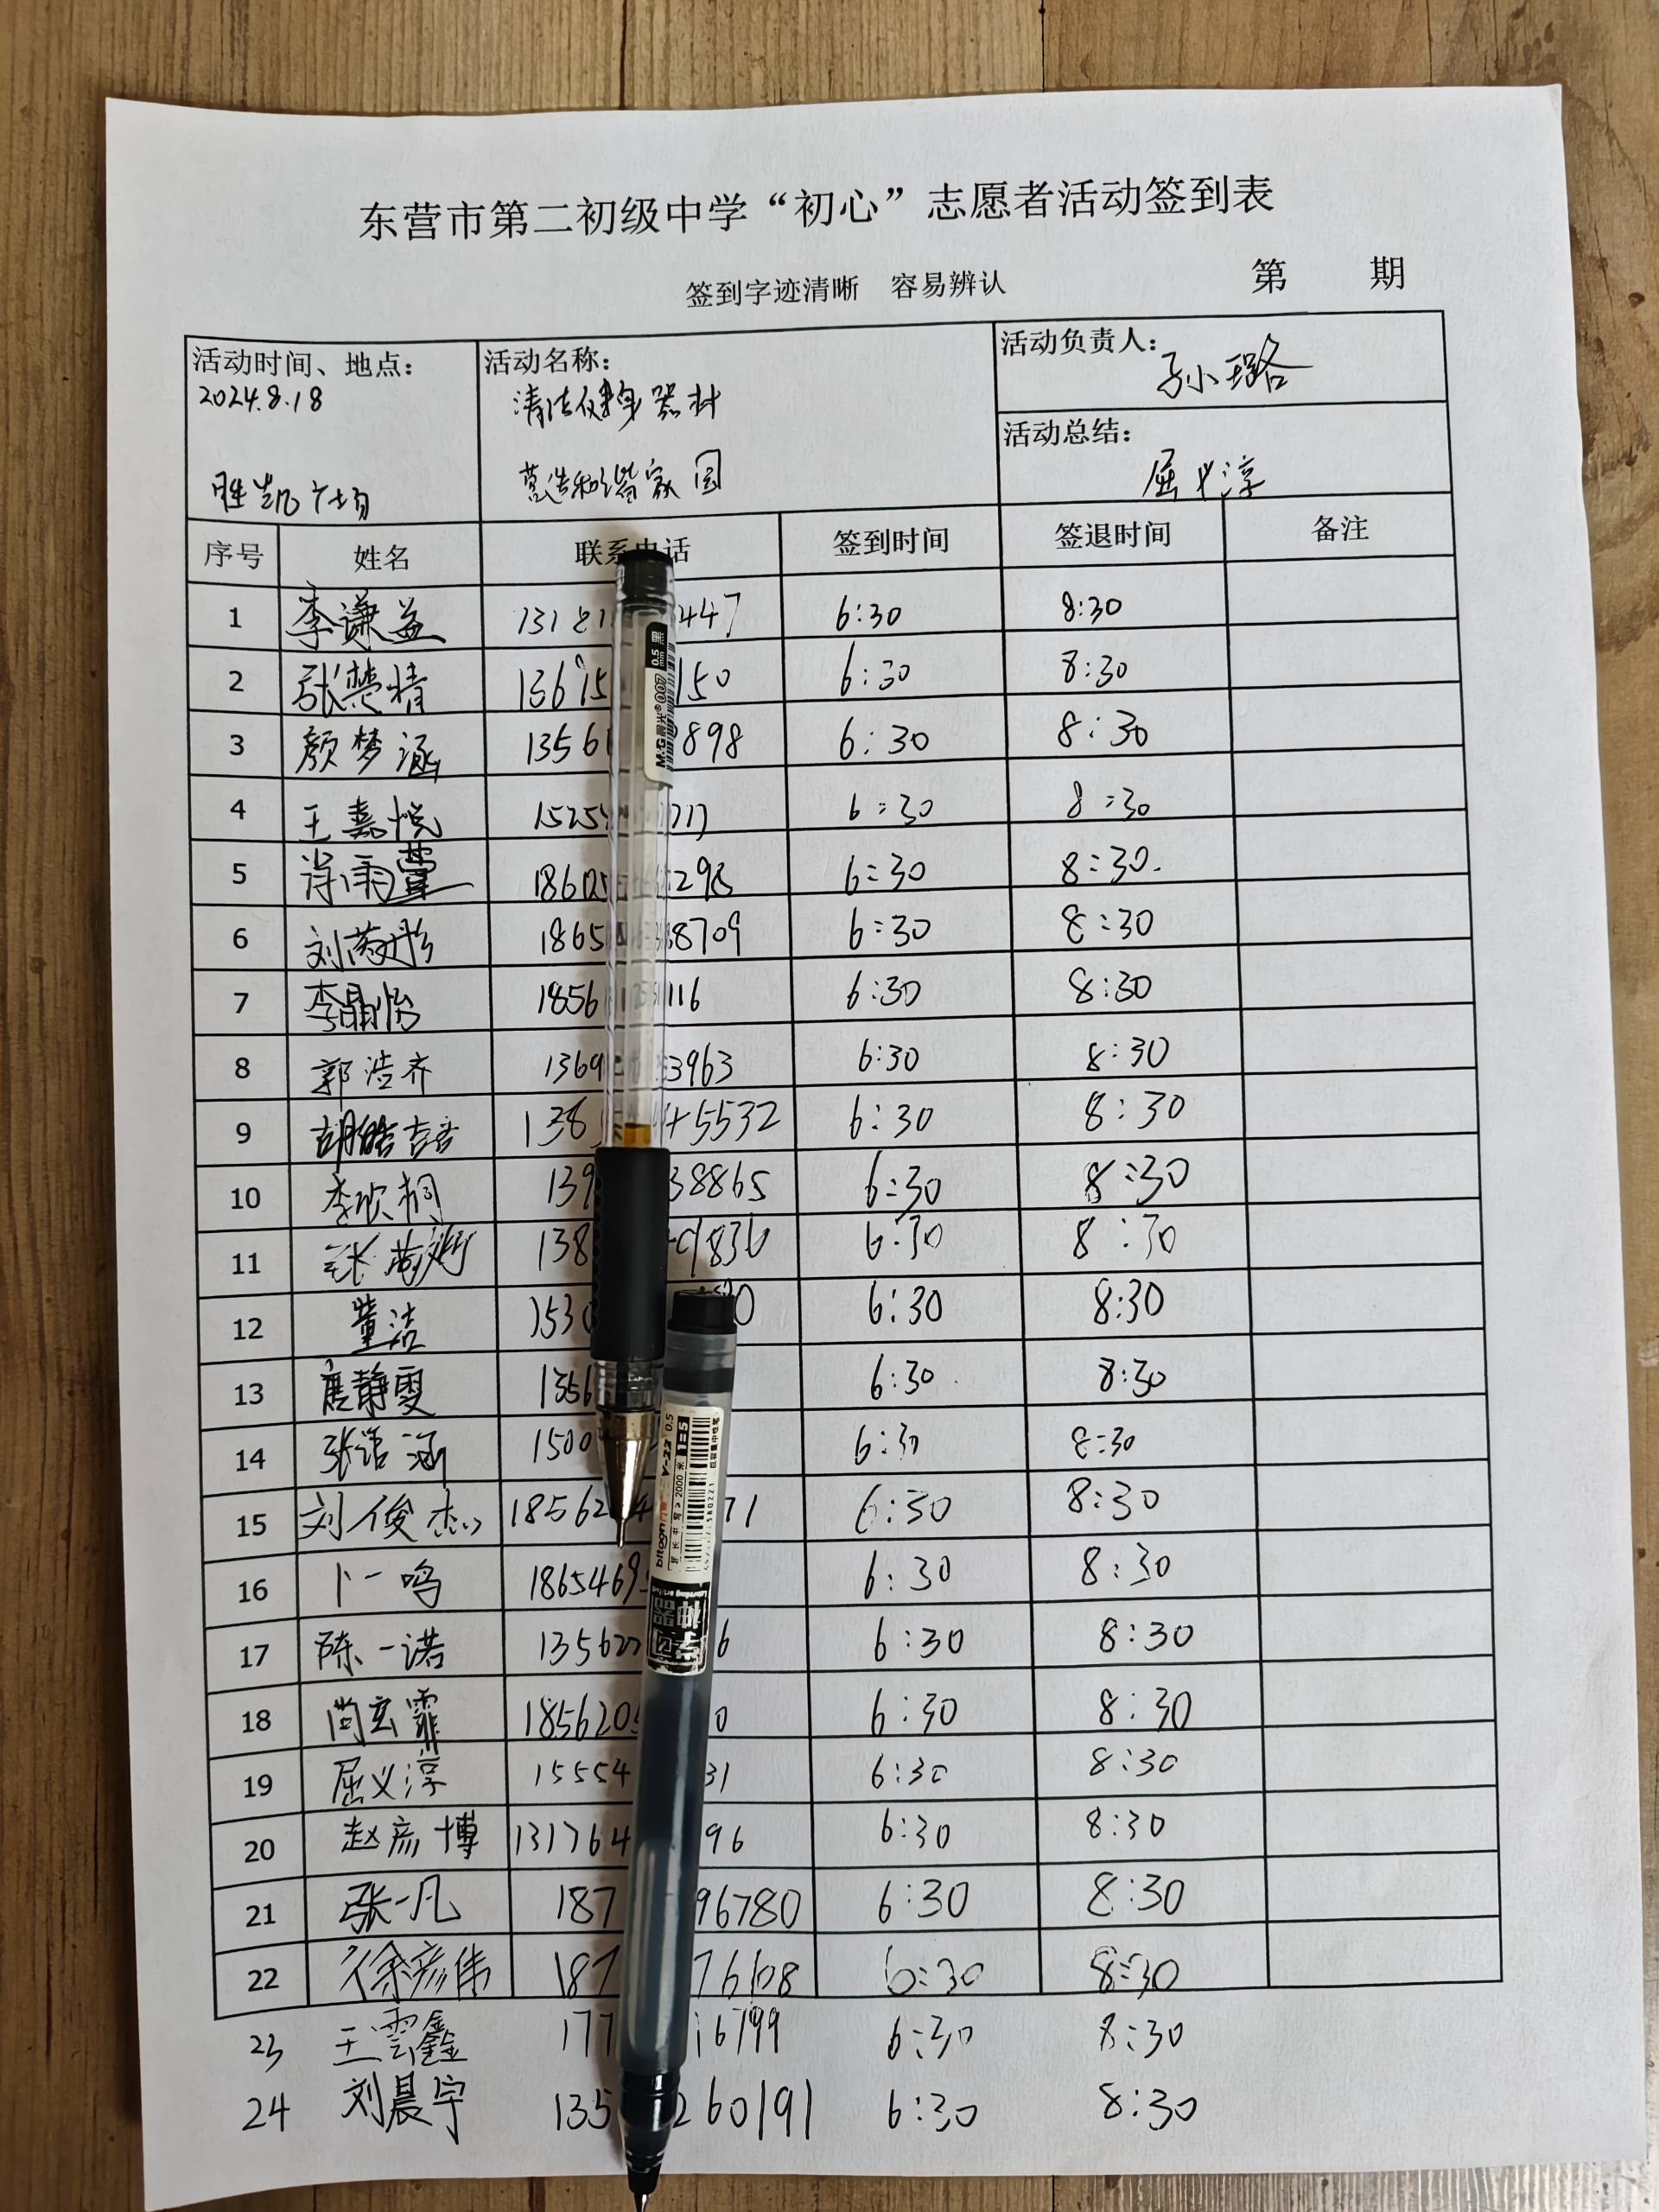 东营市第二初级中学“初心”志愿者活动签到表
签到字迹清晰 容易辨认 第 期
活动时间、地点: 活动名称: 活动负责人:
2024.8.18 清洁健身器材 孙璐
活动总结:
胜凯广场 营造和谐家园 屈义淳
序号 姓名 联系电话 签到时间 签退时间 备注
1 李谦益 13181 447 6:30 8:30
2 张楚精 13615 150 6:30 8:30
3 颜梦涵 13561 898 6:30 8:30
4 王嘉悦 1525 6:30 8:30
5 雨萱 186 298 6:30 8:30.
6 刘 彤 1865 8709 6:30 8:30
7 李晶怡 1856 116 6:30 8:30
8 郭浩齐 1369 3963 6:30 8:30
9 胡皓喆 138 45532 6:30 8:30
10 李欣桐 139 38865 6:30 8:30
11 张 138 9836 6:30 8:30
12 董洁 1530 0 6:30 8:30
13 唐静雯 1356 6:30 8:30
14 张诺涵 1500 6:30 8:30
15 刘俊杰 18562 4 71 6:30 8:30
16 卜一鸣 1865469 6:30 8:30
17 陈一诺 13562 6 6:30 8:30
18 尚玄霏 1856205 0 6:30 8:30
19 屈义淳 15554 31 6:30 8:30
20 赵彦博 131764 96 6:30 8:30
21 张一凡 187 96780 6:30 8:30
22 徐彦伟 187 76608 6:30 8:30
23 王雲鑫 177 16799 6:30 8:30
24 刘晨宇 135 260191 6:30 8:30
M&G晨光
0.5 黑
V-22 0.5
神器